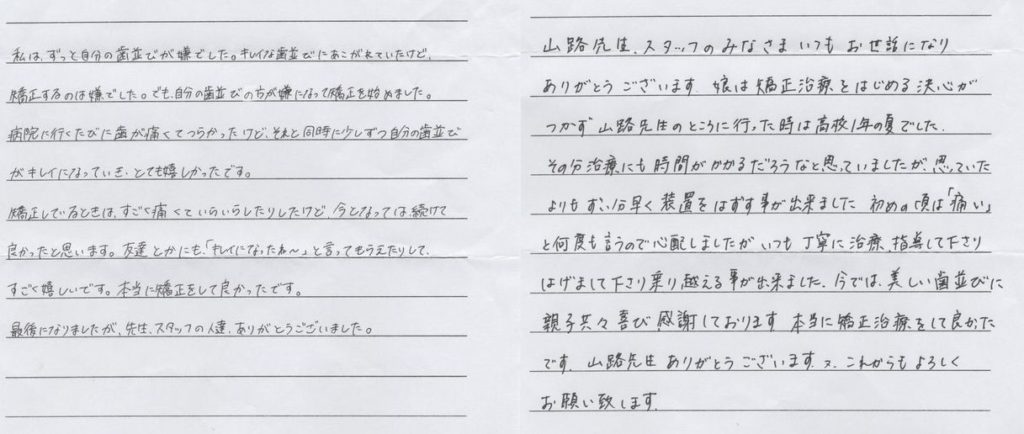 私は、ずっと自分の歯並びが嫌でした。キレイな歯並びにあこがれていたけど、
矯正するのは嫌でした。でも、自分の歯並びの方が嫌になって矯正を始めました。
病院に行くたびに歯が痛くてつらかったけど、それと同時に少しずつ自分の歯並び
がキレイになっていき、とても嬉しかったです。
矯正しているときは、すごく痛くていらいらしたりしたけど、今となっては続けて
良かったと思います。友達とかにも、「キレイになったね〜」と言ってもらえたりして、
すごく嬉しいです。本当に矯正をして良かったです。
最後になりましたが、先生、スタッフの人達、ありがとうございました。
山路先生、スタッフのみなさま いつも お世話になり
ありがとうございます。娘は矯正治療をはじめる決心が
つかず 山路先生のところに行った時は高校1年の夏でした。
その分治療にも時間がかかるだろうなと思っていましたが、思っていた
よりもずい分早く装置をはずす事が出来ました。初めの頃は「痛い」
と何度も言うので心配しましたが いつも 丁寧に治療、指導して下さり
はげまして下さり乗り越える事が出来ました。今では、美しい歯並びに
親子共々喜び 感謝しております。本当に矯正治療をして良かった
です。山路先生 ありがとうございます。これからも よろしく
お願い致します。